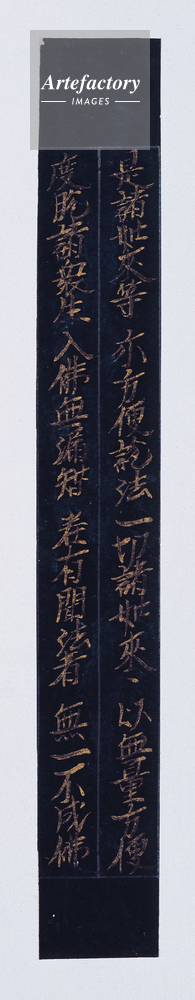 Artefactory
IMAGES
是諸世尊等 亦方便說法 一切諸如來 以無量方便
度脫諸衆生 入佛無漏智 若有聞法者 無一不成佛